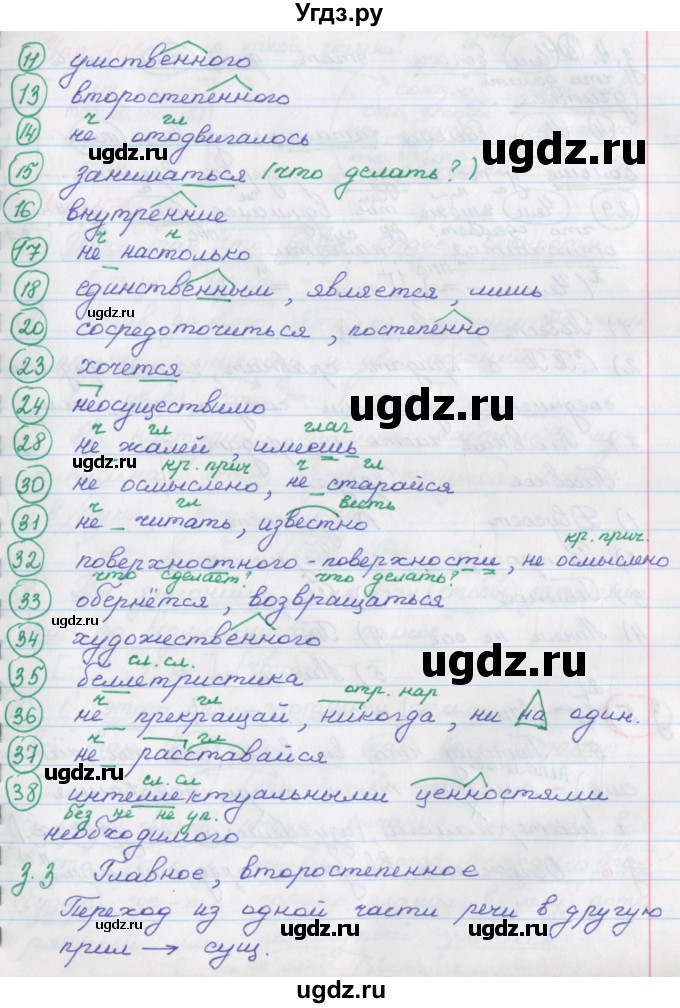 Угдз.ру
11 умственного
13 второстепенного
ч гл
14 не отодвигалось
15 заниматься (что делать?)
16 внутренние
ч н
17 не настолько
18 единственным, является, лишь
20 сосредоточиться, постепенно
23 хочется
24 неосуществимо
ч гл глаг
28 не жалей, имеешь
кр. прич ч гл
30 не осмыслено, не старайся
ч гл весть
31 не читать, известно
кр. прич.
32 поверхностного - поверхности, не осмыслено
что сделает? что делать?
33 обернётся, возвращаться
34 художественного
сл. сл.
35 беллетристика
ч гл отр. нар
36 не прекращай, никогда, ни на один.
ч гл
37 не расставайся
сл. сл
38 интеллектуальными ценностями
без не не уп.
необходимого
з.3 Главное, второстепенное
Переход из одной части речи в другую
прил → сущ.
ugdz.ru
ugdz.ru
ugdz.ru
ugdz.ru
ugdz.ru
ugdz.ru
ugdz.ru
ugdz.ru
ugdz.ru
ugdz.ru
ugdz.ru
ugdz.ru
ugdz.ru
Угдз.ру